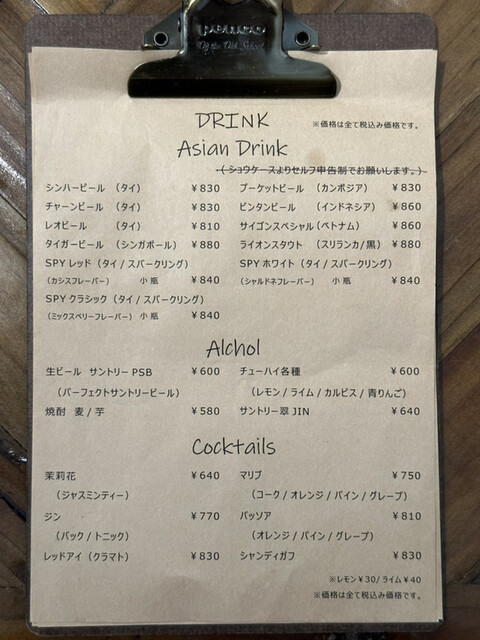 penco
DRINK ※価格は全て税込み価格です。
Asian Drink
(ショウケースよりセルフ申告制でお願いします。)
シンハービール （タイ） ￥830 プーケットビール （カンボジア） ￥830
チャーンビール （タイ） ￥830 ビンタンビール （インドネシア） ￥860
レオビール （タイ） ￥810 サイゴンスペシャル（ベトナム） ￥860
タイガービール （シンガポール） ￥880 ライオンスタウト （スリランカ/黒） ￥880
SPY レッド（タイ / スパークリング） SPY ホワイト（タイ / スパークリング）
（カシスフレーバー） 小瓶 ￥840 （シャルドネフレーバー） 小瓶 ￥840
SPY クラシック（タイ / スパークリング）
（ミックスベリーフレーバー）小瓶 ￥840
Alchol
生ビール サントリー PSB ￥600 チューハイ各種 ￥600
（パーフェクトサントリービール） （レモン / ライム / カルピス / 青りんご）
焼酎 麦 / 芋 ￥580 サントリー翠 JIN ￥640
Cocktails
茉莉花 ￥640 マリブ ￥750
（ジャスミンティー） （コーク / オレンジ / パイン / グレープ）
ジン ￥770 パッソア ￥810
（バック / トニック） （オレンジ / パイン / グレープ）
レッドアイ（クラマト） ￥830 シャンディガフ ￥830
※レモン￥30/ ライム￥40
※価格は全て税込み価格です。